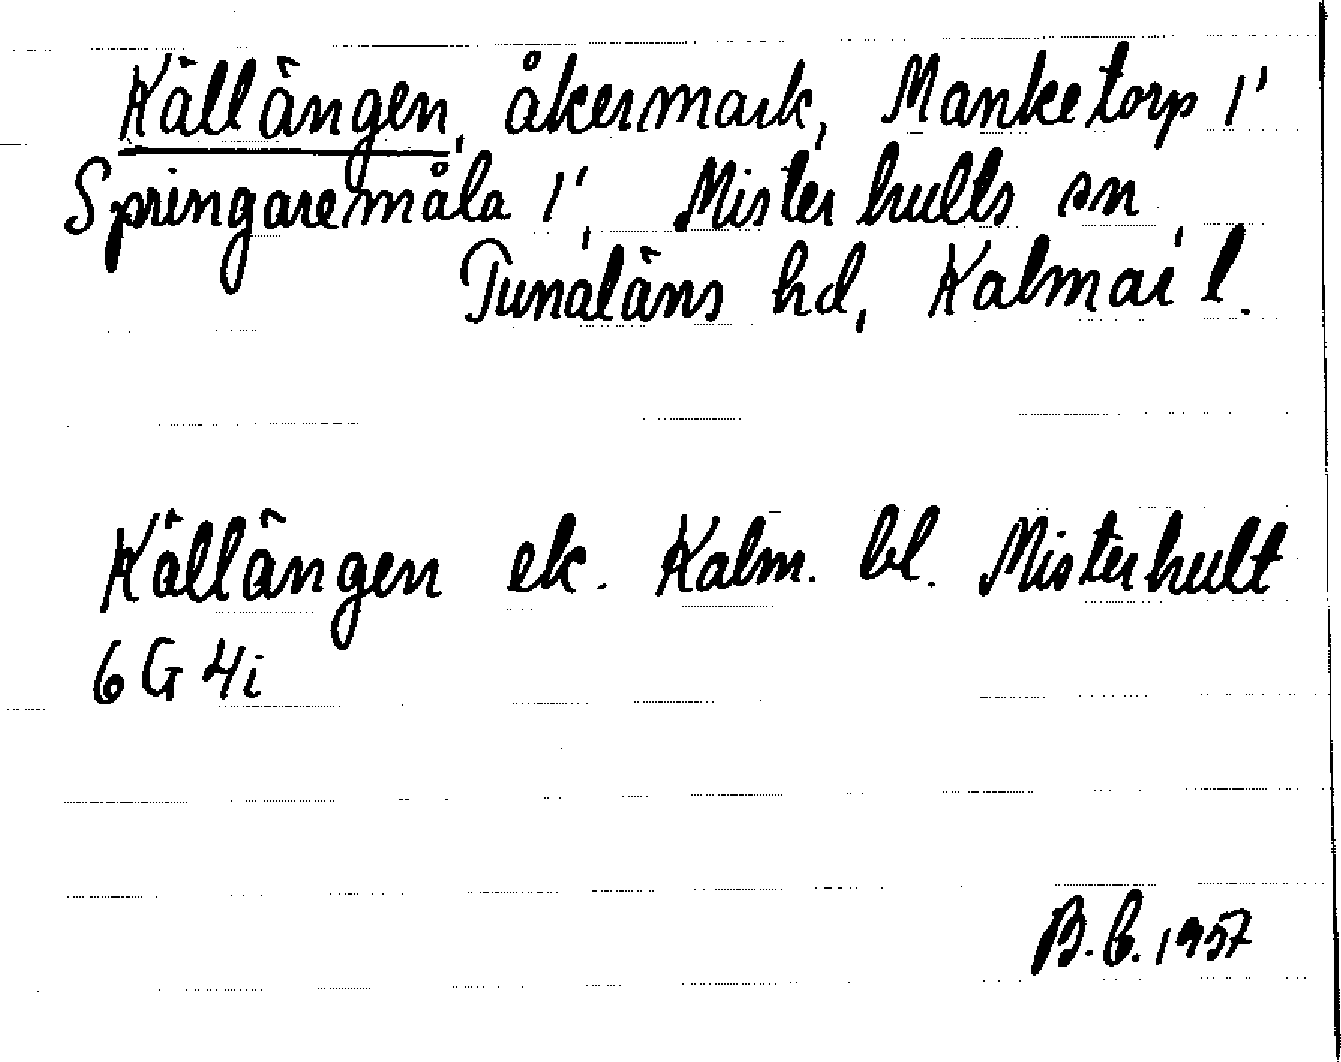 Källängen, åkermark, Manketorp 1'
Springaremåla 1', Misterhults sn,
Tunaläns hd, Kalmar l.
Källängen ek. Kalm. bl. Misterhult
6 G 4i
B.B. 1957